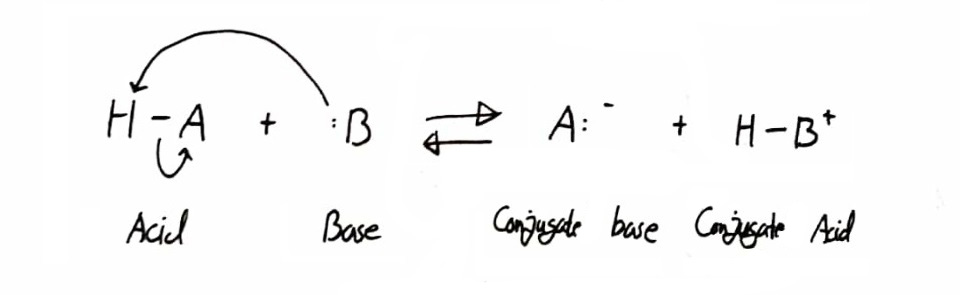 H-A + :B ⇌ A:⁻ + H-B⁺
Acid Base Conjugate base Conjugate Acid